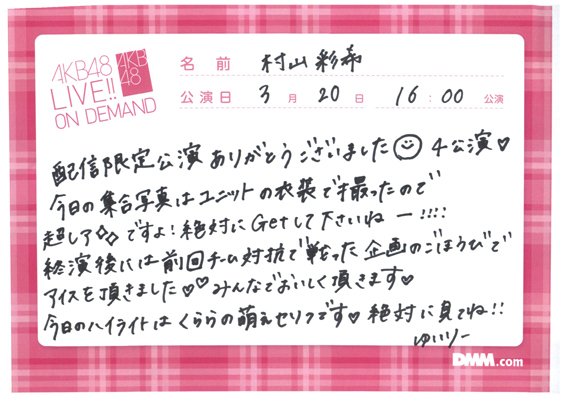 AKB48
LIVE!!
ON DEMAND
AKB
48
名前 村山彩希
公演日 3月20日 16:00公演
配信限定公演ありがとうございました 4公演♡
今日の集合写真はユニットの衣装で撮ったので
超レアですよ!絶対にGetして下さいねー!!!!
終演後には前回チーム対抗で戦った企画のごほうびで
アイスを頂きました♡♡みんなでおいしく頂きます♡
今日のハイライトはくららの萌えセリフです♡絶対に見てね!!
ゆいりー
DMM.com